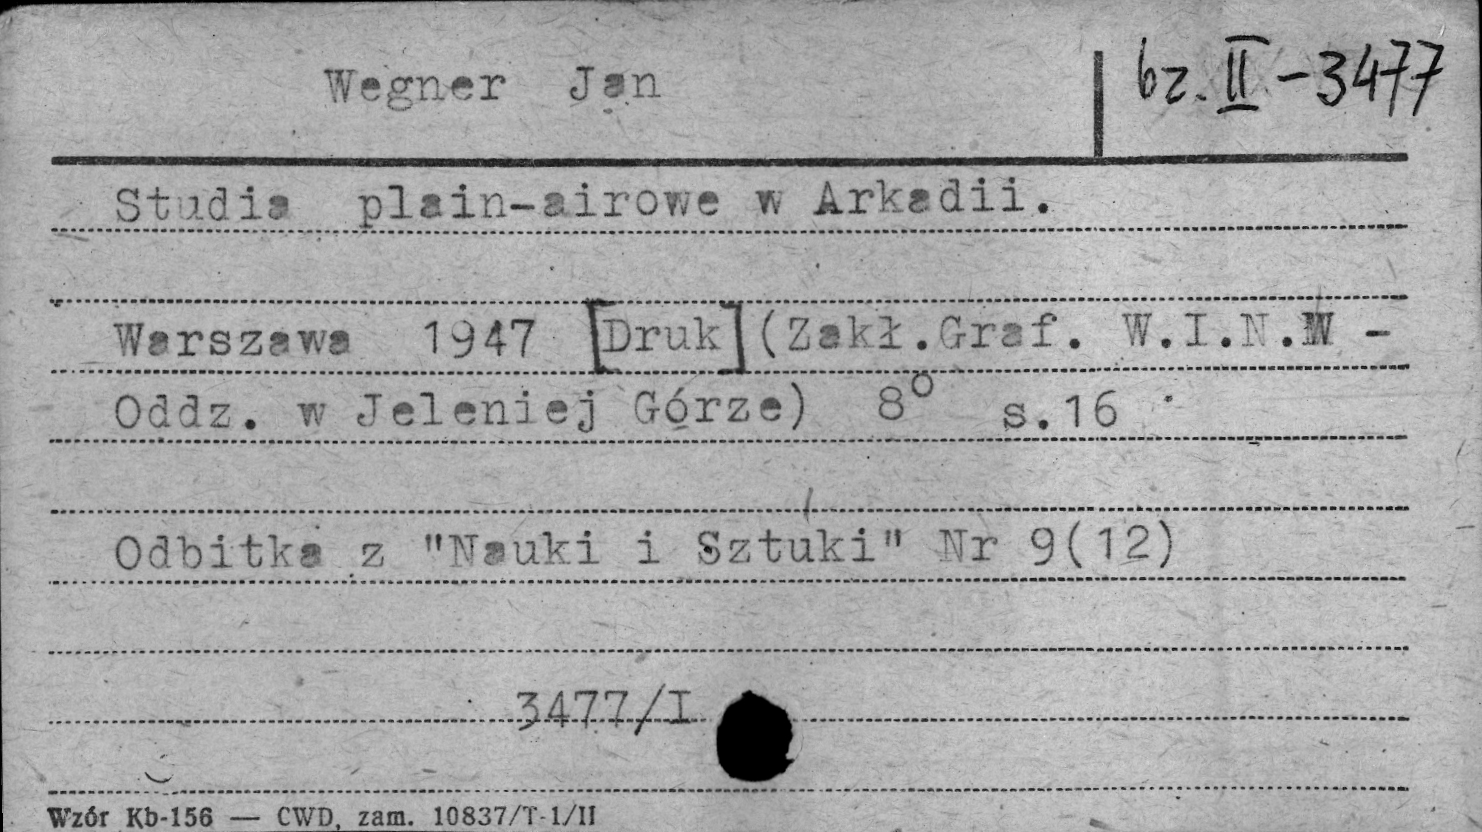 Wegner Jan
bz. II - 3477
Studia plain-airowe w Arkadii.
Warszawa 1947 [Druk] (Zakł.Graf. W.I.N.W -
Oddz. w Jeleniej Górze) 8° s.16
Odbitka z "Nauki i Sztuki" Nr 9(12)
3477/I
Wzór Kb-156 — CWD, zam. 10837/T-1/II